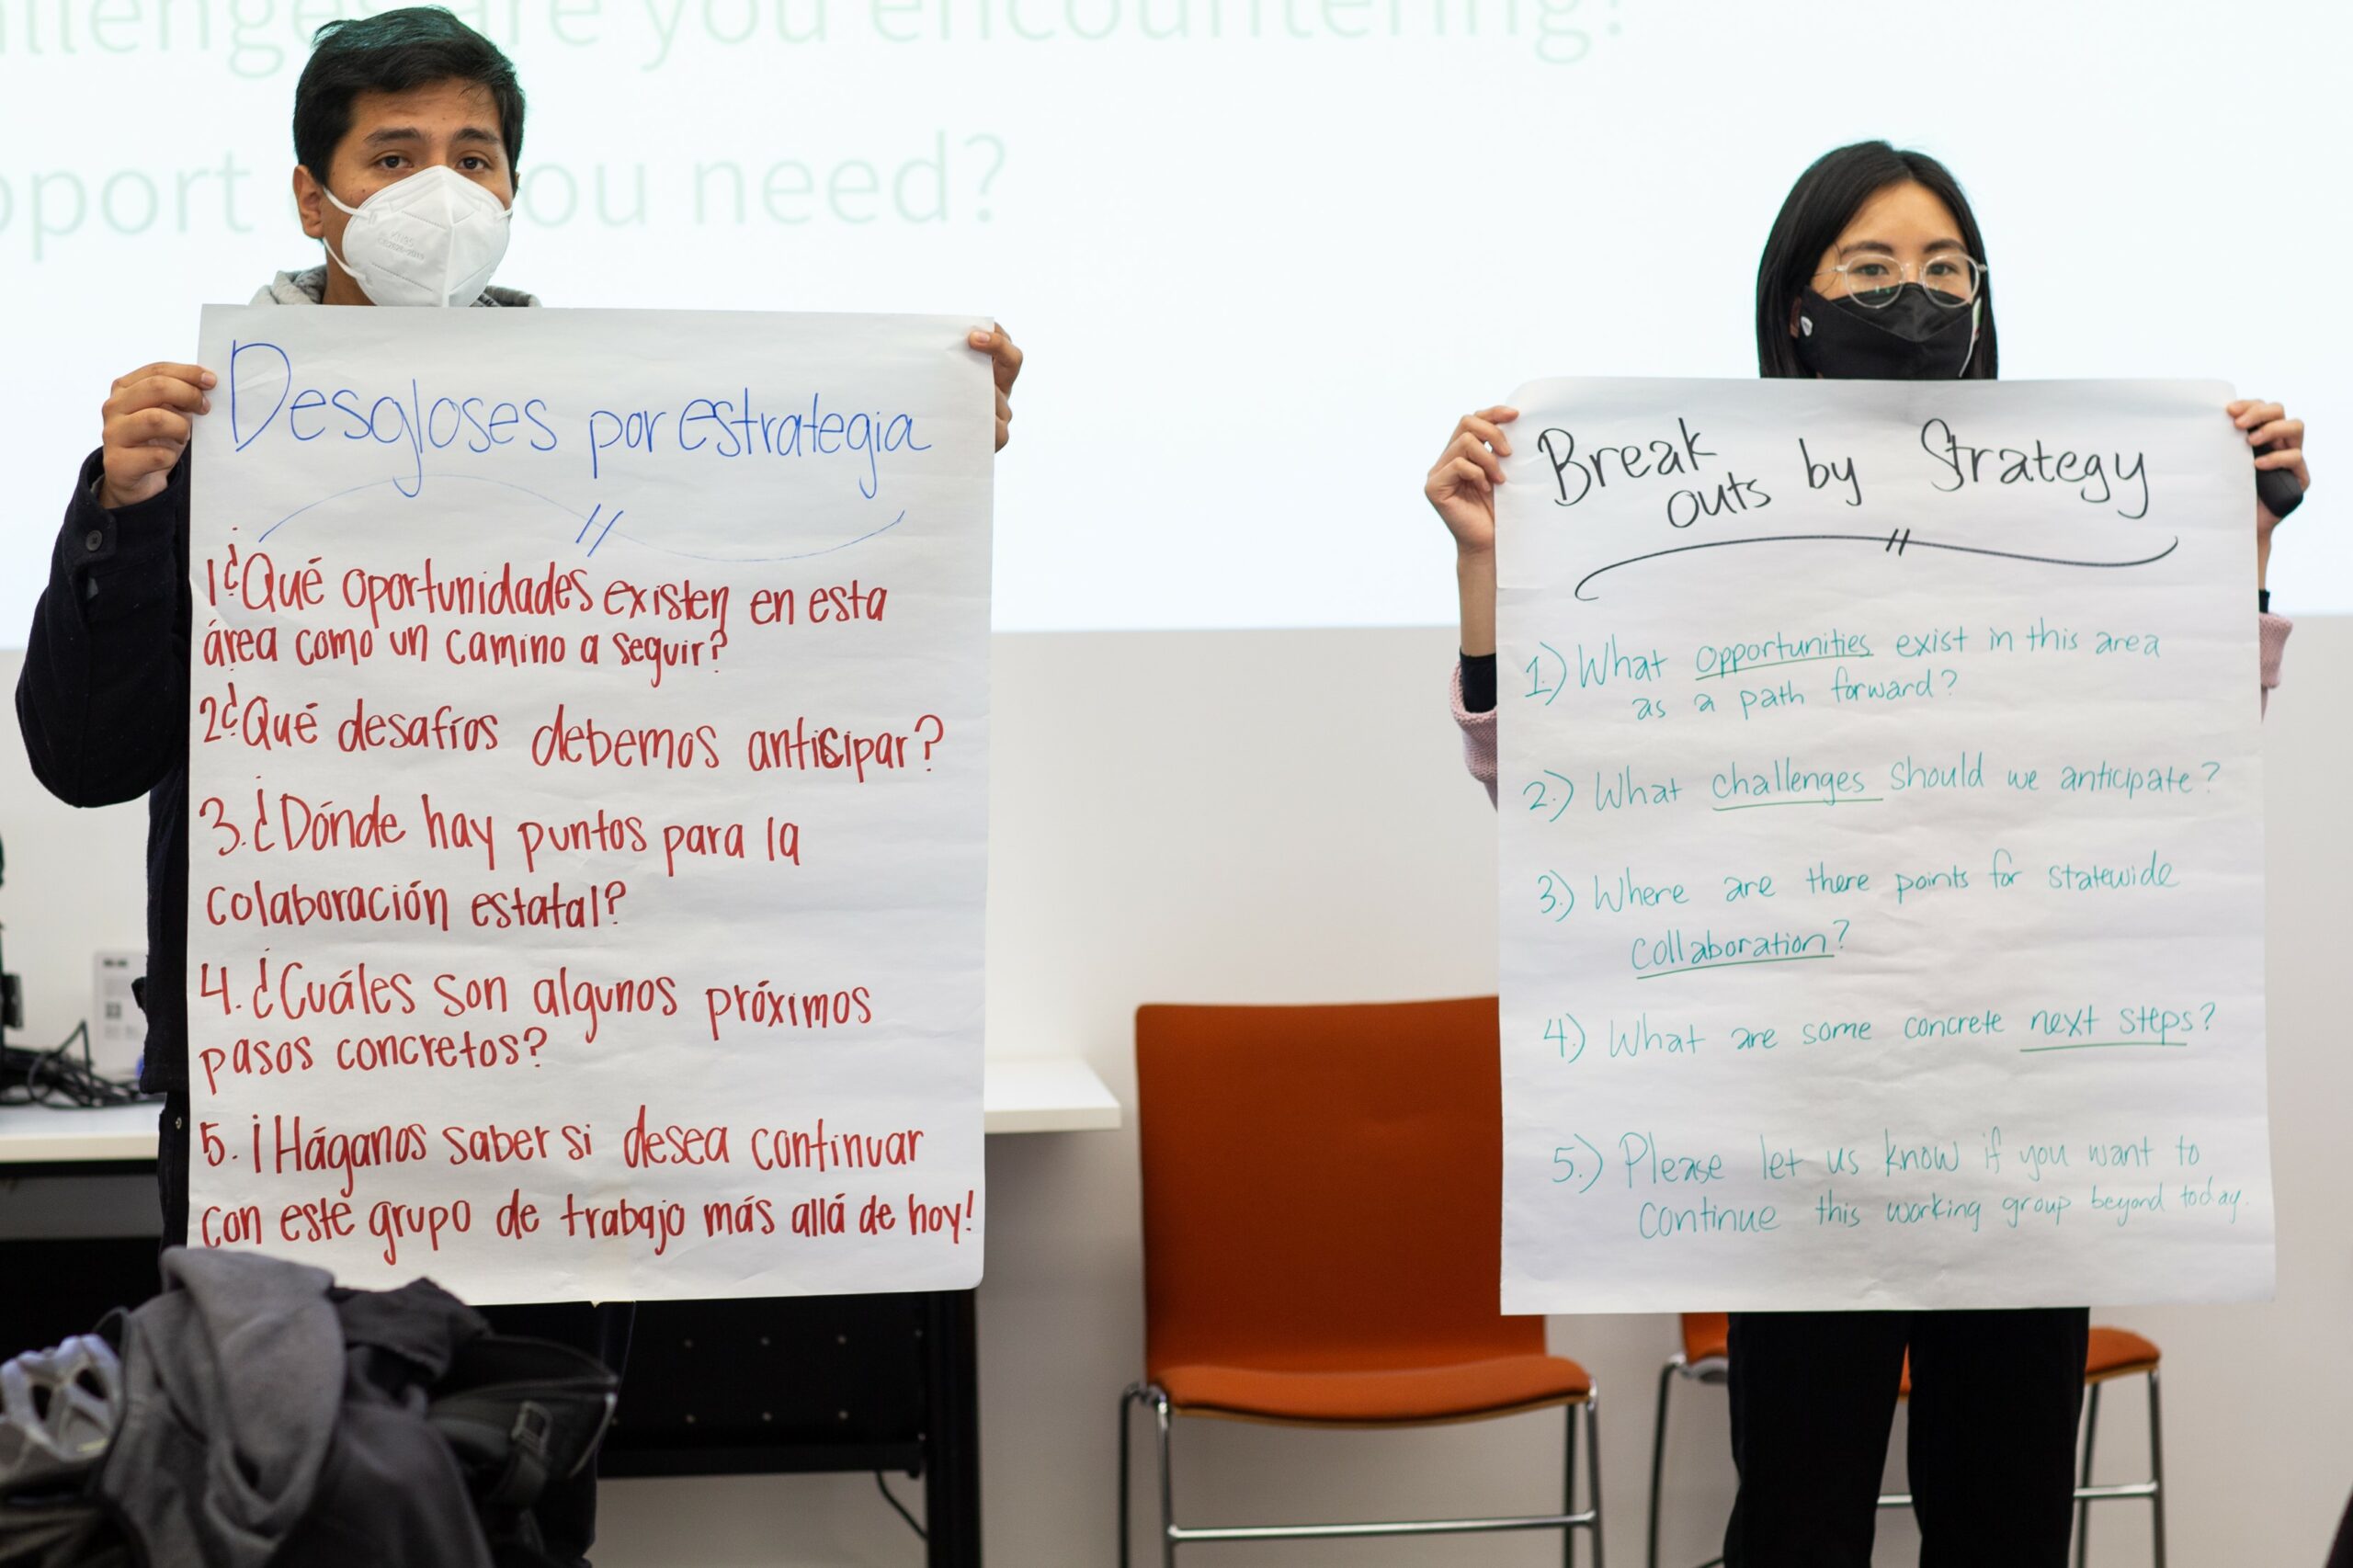 are you encountering?
need?
KN95
Desgloses por estrategia
1¿Qué oportunidades existen en esta
área como un camino a seguir?
2¿Qué desafíos debemos anticipar?
3. ¿Dónde hay puntos para la
colaboración estatal?
4. ¿Cuáles son algunos próximos
pasos concretos?
5. ¡Háganos saber si desea continuar
con este grupo de trabajo más allá de hoy!
Break
outs by Strategy
1.) What opportunities exist in this area
as a path forward?
2.) What challenges should we anticipate?
3.) Where are there points for statewide
collaboration?
4.) What are some concrete next steps?
5.) Please let us know if you want to
continue this working group beyond today.